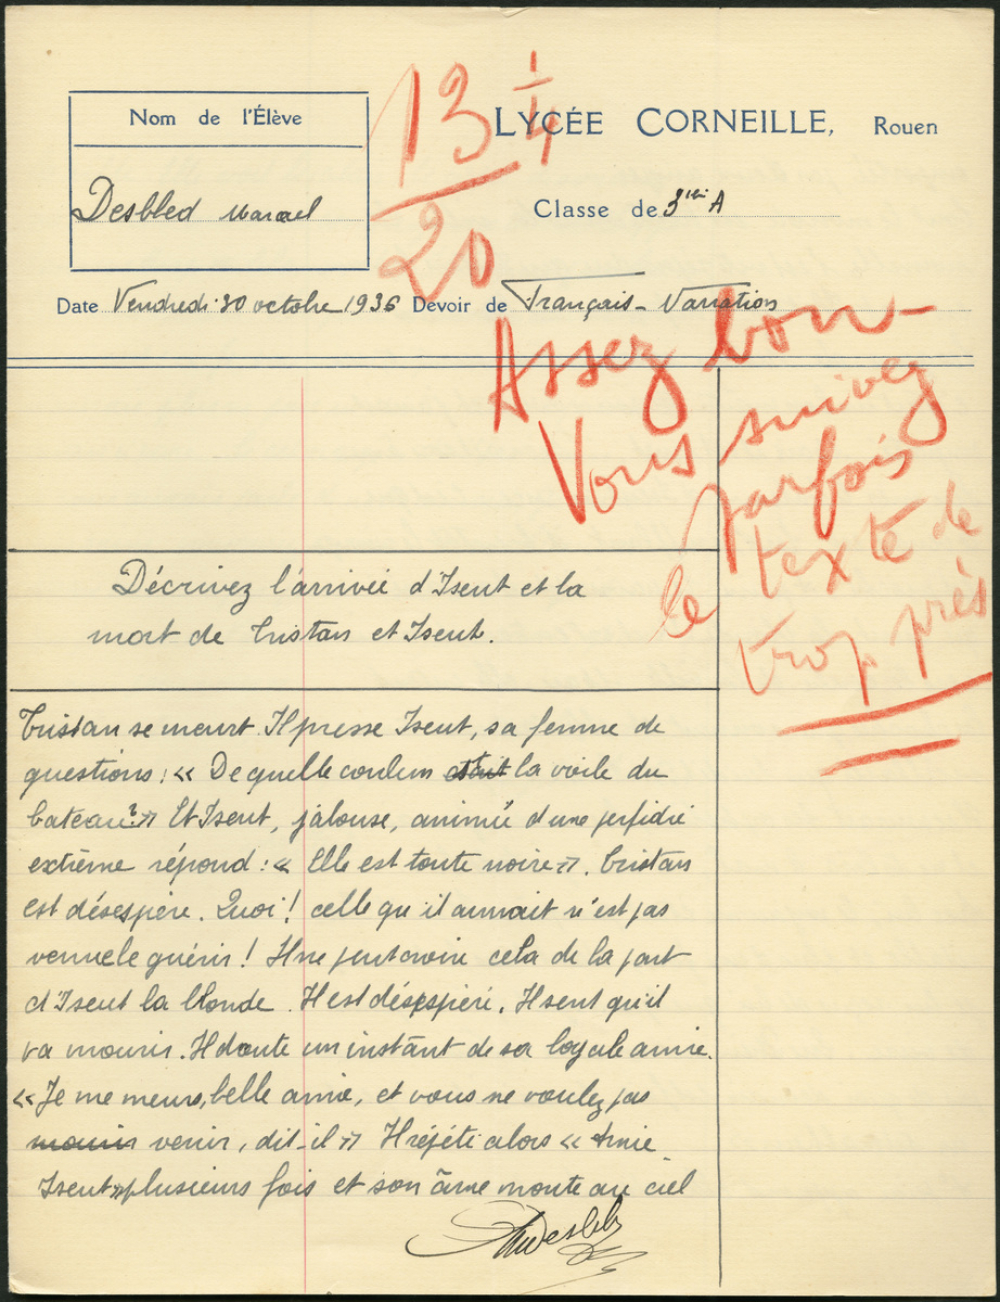 Nom de l'Élève
Desbled Marcel
13 1/4
20
LYCÉE CORNEILLE, Rouen
Classe de 3ème A
Date Vendredi 30 octobre 1936 Devoir de Français - Narration
Assez bon -
Vous suivez
parfois
le texte de
trop près
Décrivez l'arrivée d'Iseut et la
mort de Tristan et Iseut.
Tristan se meurt. Il presse Iseut, sa femme de
questions : « De quelle couleur était la voile du
bateau? » Et Iseut, jalouse, animée d'une perfidie
extrême répond : « Elle est toute noire ». Tristan
est désespéré. Quoi ! celle qu'il aimait n'est pas
venue le guérir ! Il ne peut croire cela de la part
d'Iseut la blonde. Il est désespéré. Il sent qu'il
va mourir. Il doute un instant de sa loyale amie.
« Je me meurs, belle amie, et vous ne voulez pas
mourir venir, dit-il » Il répète alors « Amie
Iseut » plusieurs fois et son âme monte au ciel
MDesbled